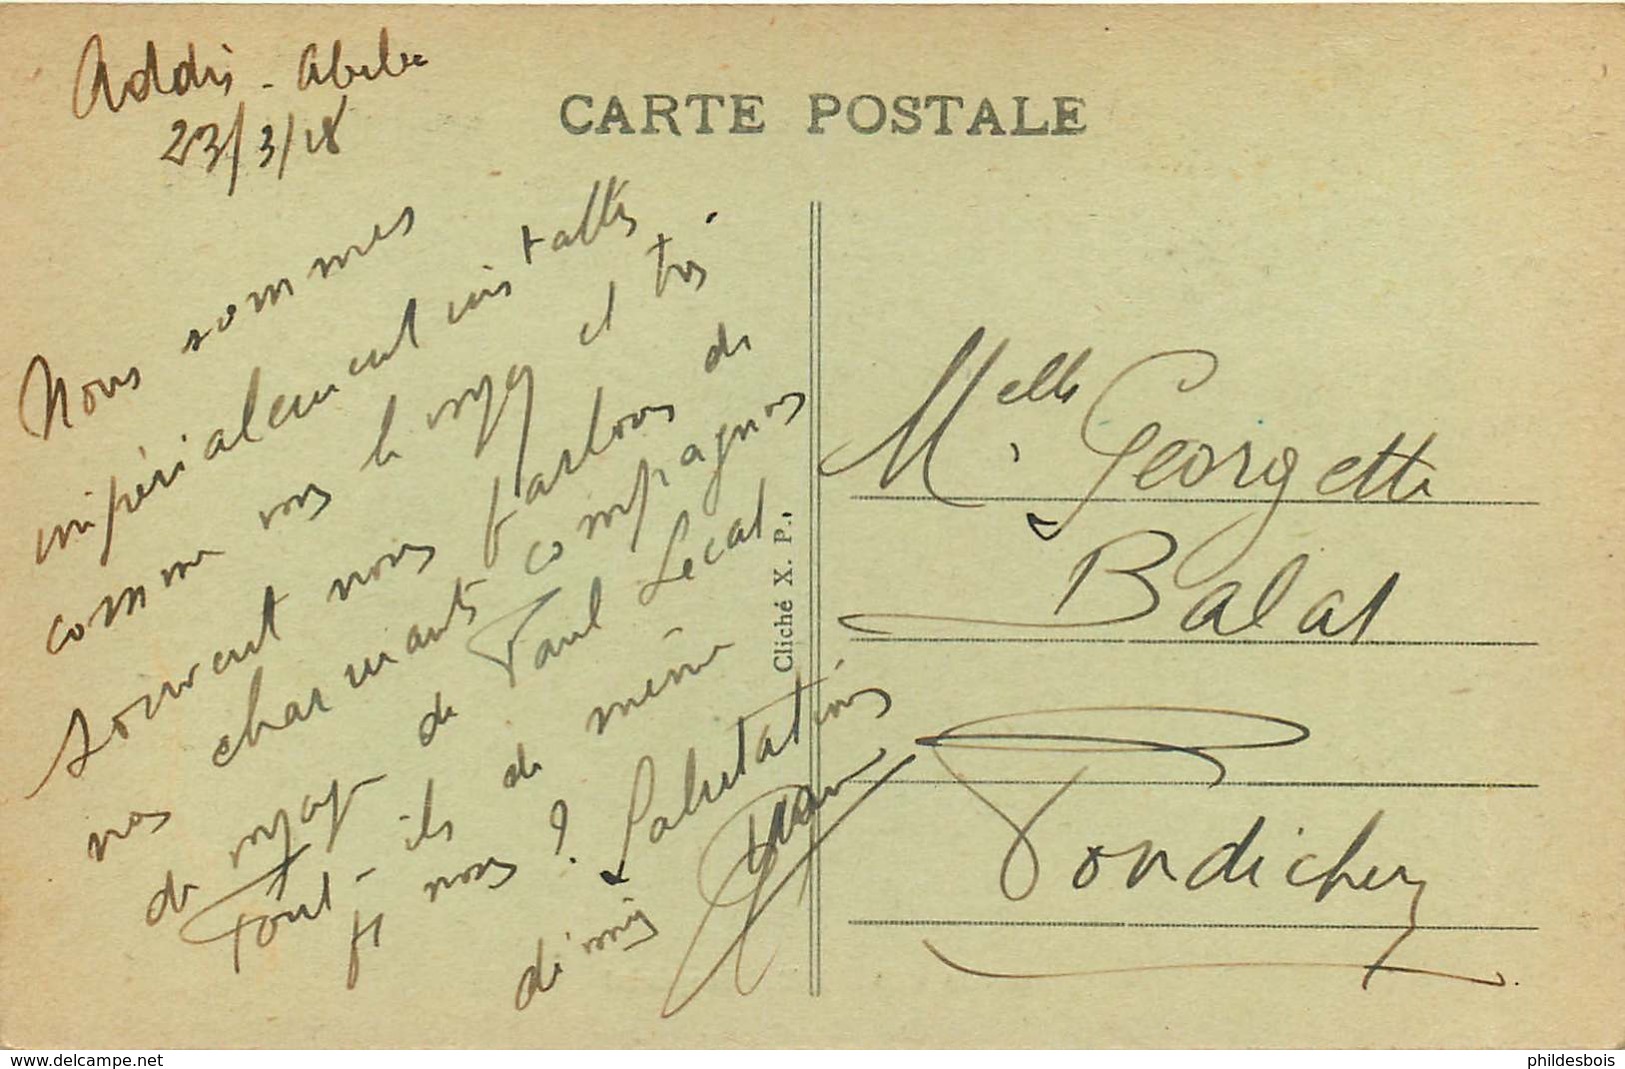 Addis - Abeba
23/3/18
CARTE POSTALE
Nous sommes
impérialement installés
comme vous le voyez et très
souvent nous parlons de
nos charmants compagnons
de voyage de Paul Lecat.
Font-ils de même
pr nous ? Salutations
d'amis
Cliché X. P.
Melle Georgette
Balat
Pondichery
www.delcampe.net
phildesbois